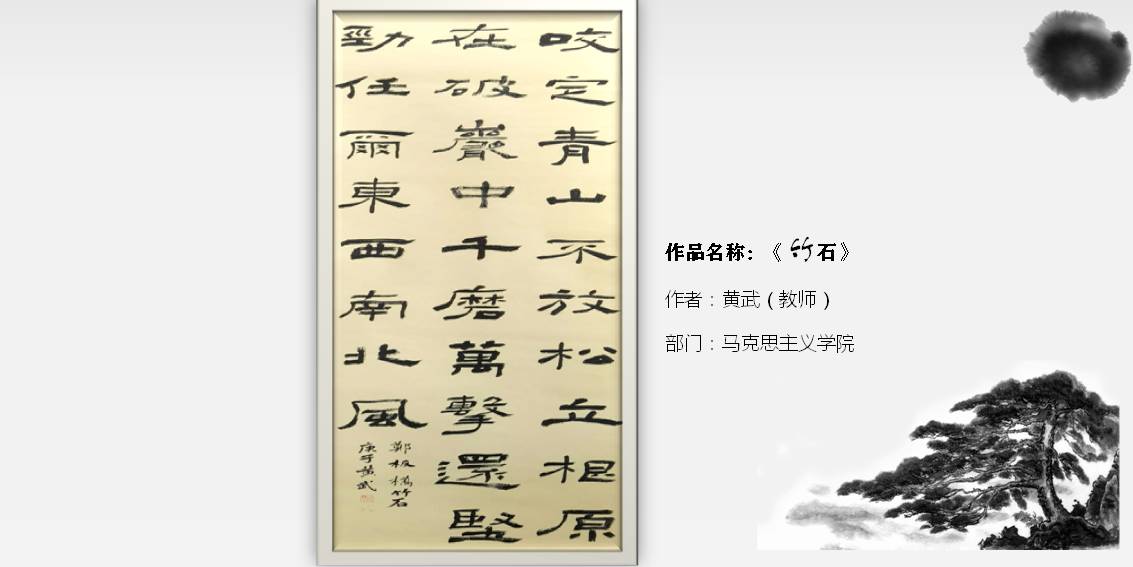 咬定青山不放松立根原
在破巖中千磨萬擊還堅
勁任爾東西南北風
鄭板橋竹石
庚子黃武
作品名称：《竹石》
作者：黄武（教师）
部门：马克思主义学院